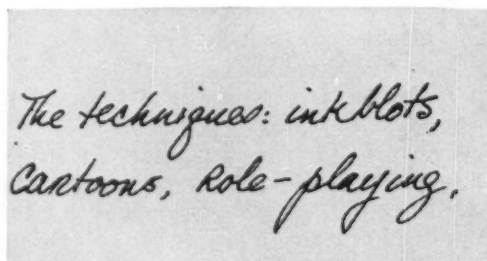 The techniques: inkblots,
Cartoons, Role-playing.